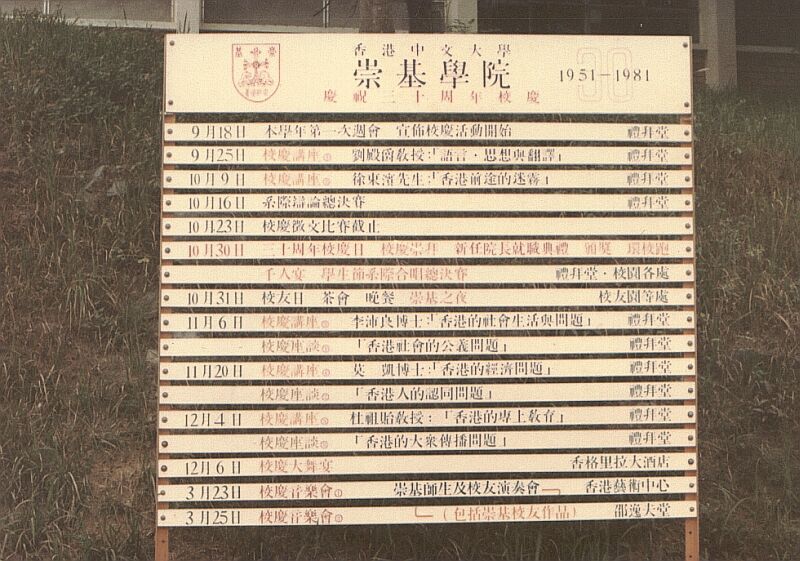 香港中文大學
崇基學院
1951-1981
30
慶祝三十周年校慶
9月18日 本學年第一次週會 宣佈校慶活動開始 禮拜堂
9月25日 校慶講座 劉殿爵教授:「語言·思想與翻譯」 禮拜堂
10月9日 校慶講座 徐東濱先生:「香港前途的迷霧」 禮拜堂
10月16日 系際辯論總決賽 禮拜堂
10月23日 校慶徵文比賽截止
10月30日 三十周年校慶日 校慶崇拜 新任院長就職典禮 頒獎 環校跑
千人宴 學生節系際合唱總決賽 禮拜堂·校園各處
10月31日 校友日 茶會 晚餐 崇基之夜 校友園等處
11月6日 校慶講座 李沛良博士:「香港的社會生活與問題」 禮拜堂
校慶座談 「香港社會的公義問題」 禮拜堂
11月20日 校慶講座 莫 凱博士:「香港的經濟問題」 禮拜堂
校慶座談 「香港人的認同問題」 禮拜堂
12月4日 校慶講座 杜祖貽教授:「香港的專上教育」 禮拜堂
校慶座談 「香港的大衆傳播問題」 禮拜堂
12月6日 校慶大舞宴 香格里拉大酒店
3月23日 校慶音樂會 崇基師生及校友演奏會 香港藝術中心
3月25日 校慶音樂會 (包括崇基校友作品) 邵逸夫堂